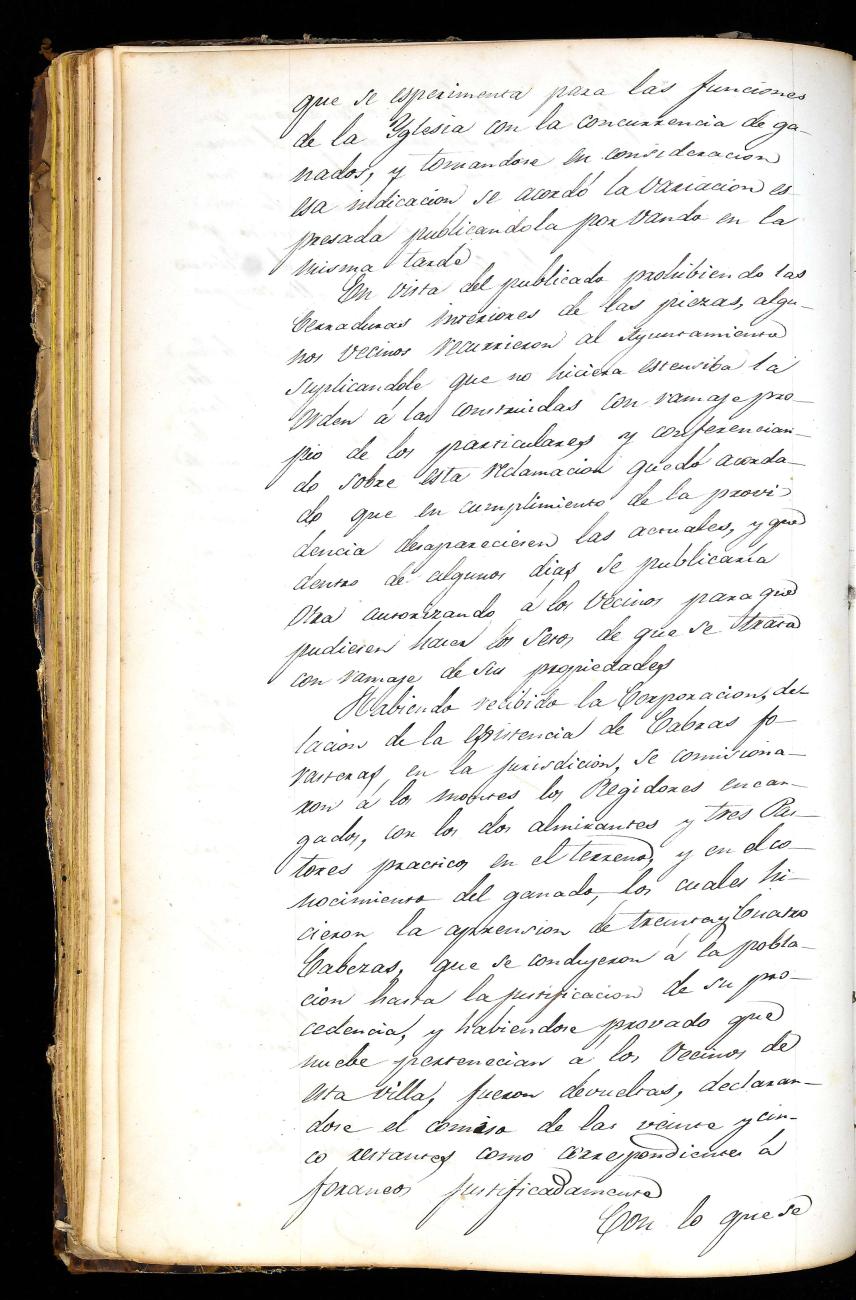 que se esperimenta para las funciones
de la Yglesia con la concurrencia de ga-
nados, y tomandose en consideracion
esa indicacion se acordó la variacion es-
presada publicandola por vando en la
misma tarde
En vista del publicado prohibiendo las
Cerraduras interiores de las piezas, algu-
nos vecinos recurrieron al Ayuntamiento
suplicandole que no hiciera estensiba la
orden á las construidas con ramaje pro-
pio de los particulares y conferencian-
do sobre esta reclamacion quedó acorda-
do que en cumplimiento de la provi-
dencia desapareciesen las actuales, y que
dentro de algunos dias se publicaria
otra autorizando á los vecinos para que
pudiesen hacer los setos de que se trata
con ramaje de sus propiedades
Habiendo recibido la Corporacion, de-
lacion de la existencia de Cabras fo-
rasteras, en la jurisdicion, se comisiona-
ron á los montes los Regidores encar-
gados, con los dos almirantes y tres Pas-
tores practicos en el terreno, y en el co-
nocimiento del ganado, los cuales hi-
cieron la aprension de treinta y Cuatro
Cabezas, que se condujeron á la pobla-
cion hasta la justificacion de su pro-
cedencia, y habiendose provado que
nuebe pertenecian á los vecinos de
esta villa, fueron devueltas, declaran-
dose el comiso de las veinte y cin-
co restantes como correspondientes á
foraneos justificadamente
Con lo que se